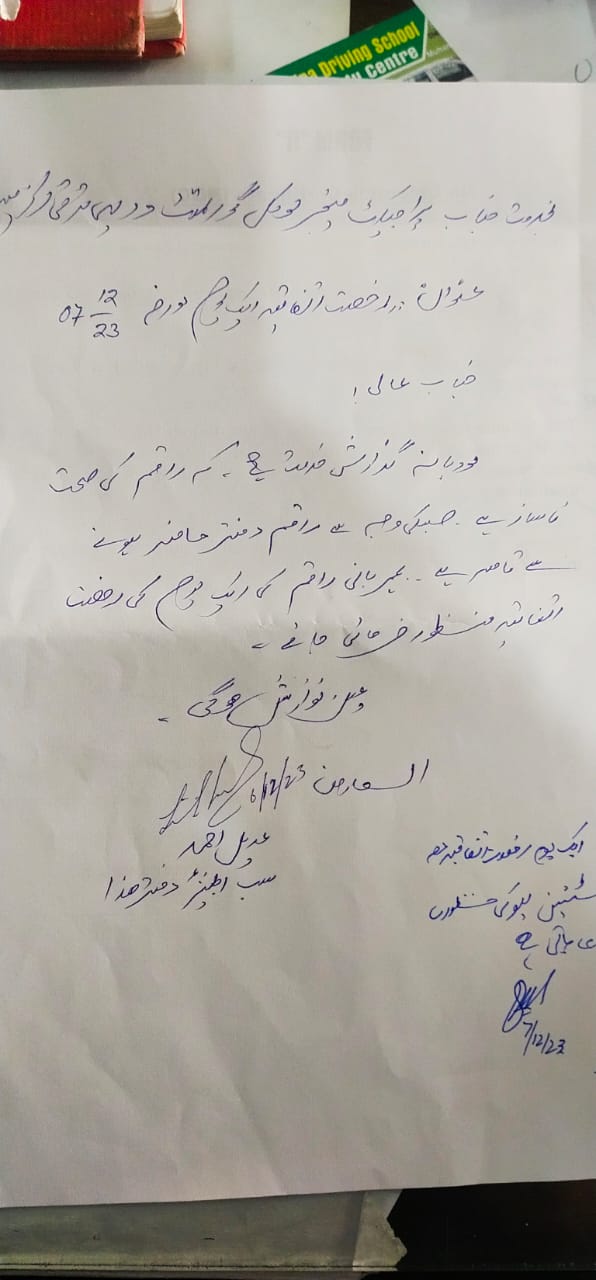 Driving School
Centre
بخدمت جناب پراجیکٹ مینجر
عنوان: رخصت اتفاقیہ ایک یوم مورخہ 07-12-23
جناب عالی!
مودبانہ گذارش خدمت ہے۔ کہ راقم کی صحت
ناساز ہے۔ جسکی وجہ سے راقم دفتر حاضر ہونے
سے قاصر ہے۔ بمہربانی راقم کی ایک یوم کی رخصت
اتفاقیہ منظور فرمائی جائے۔
عین نوازش ہوگی۔
العارض 6/12/23
عدیل احمد
سب انجینئر دفتر ھذا
ایک یوم رخصت اتفاقیہ
کی منظوری
جاتی ہے
7/12/23